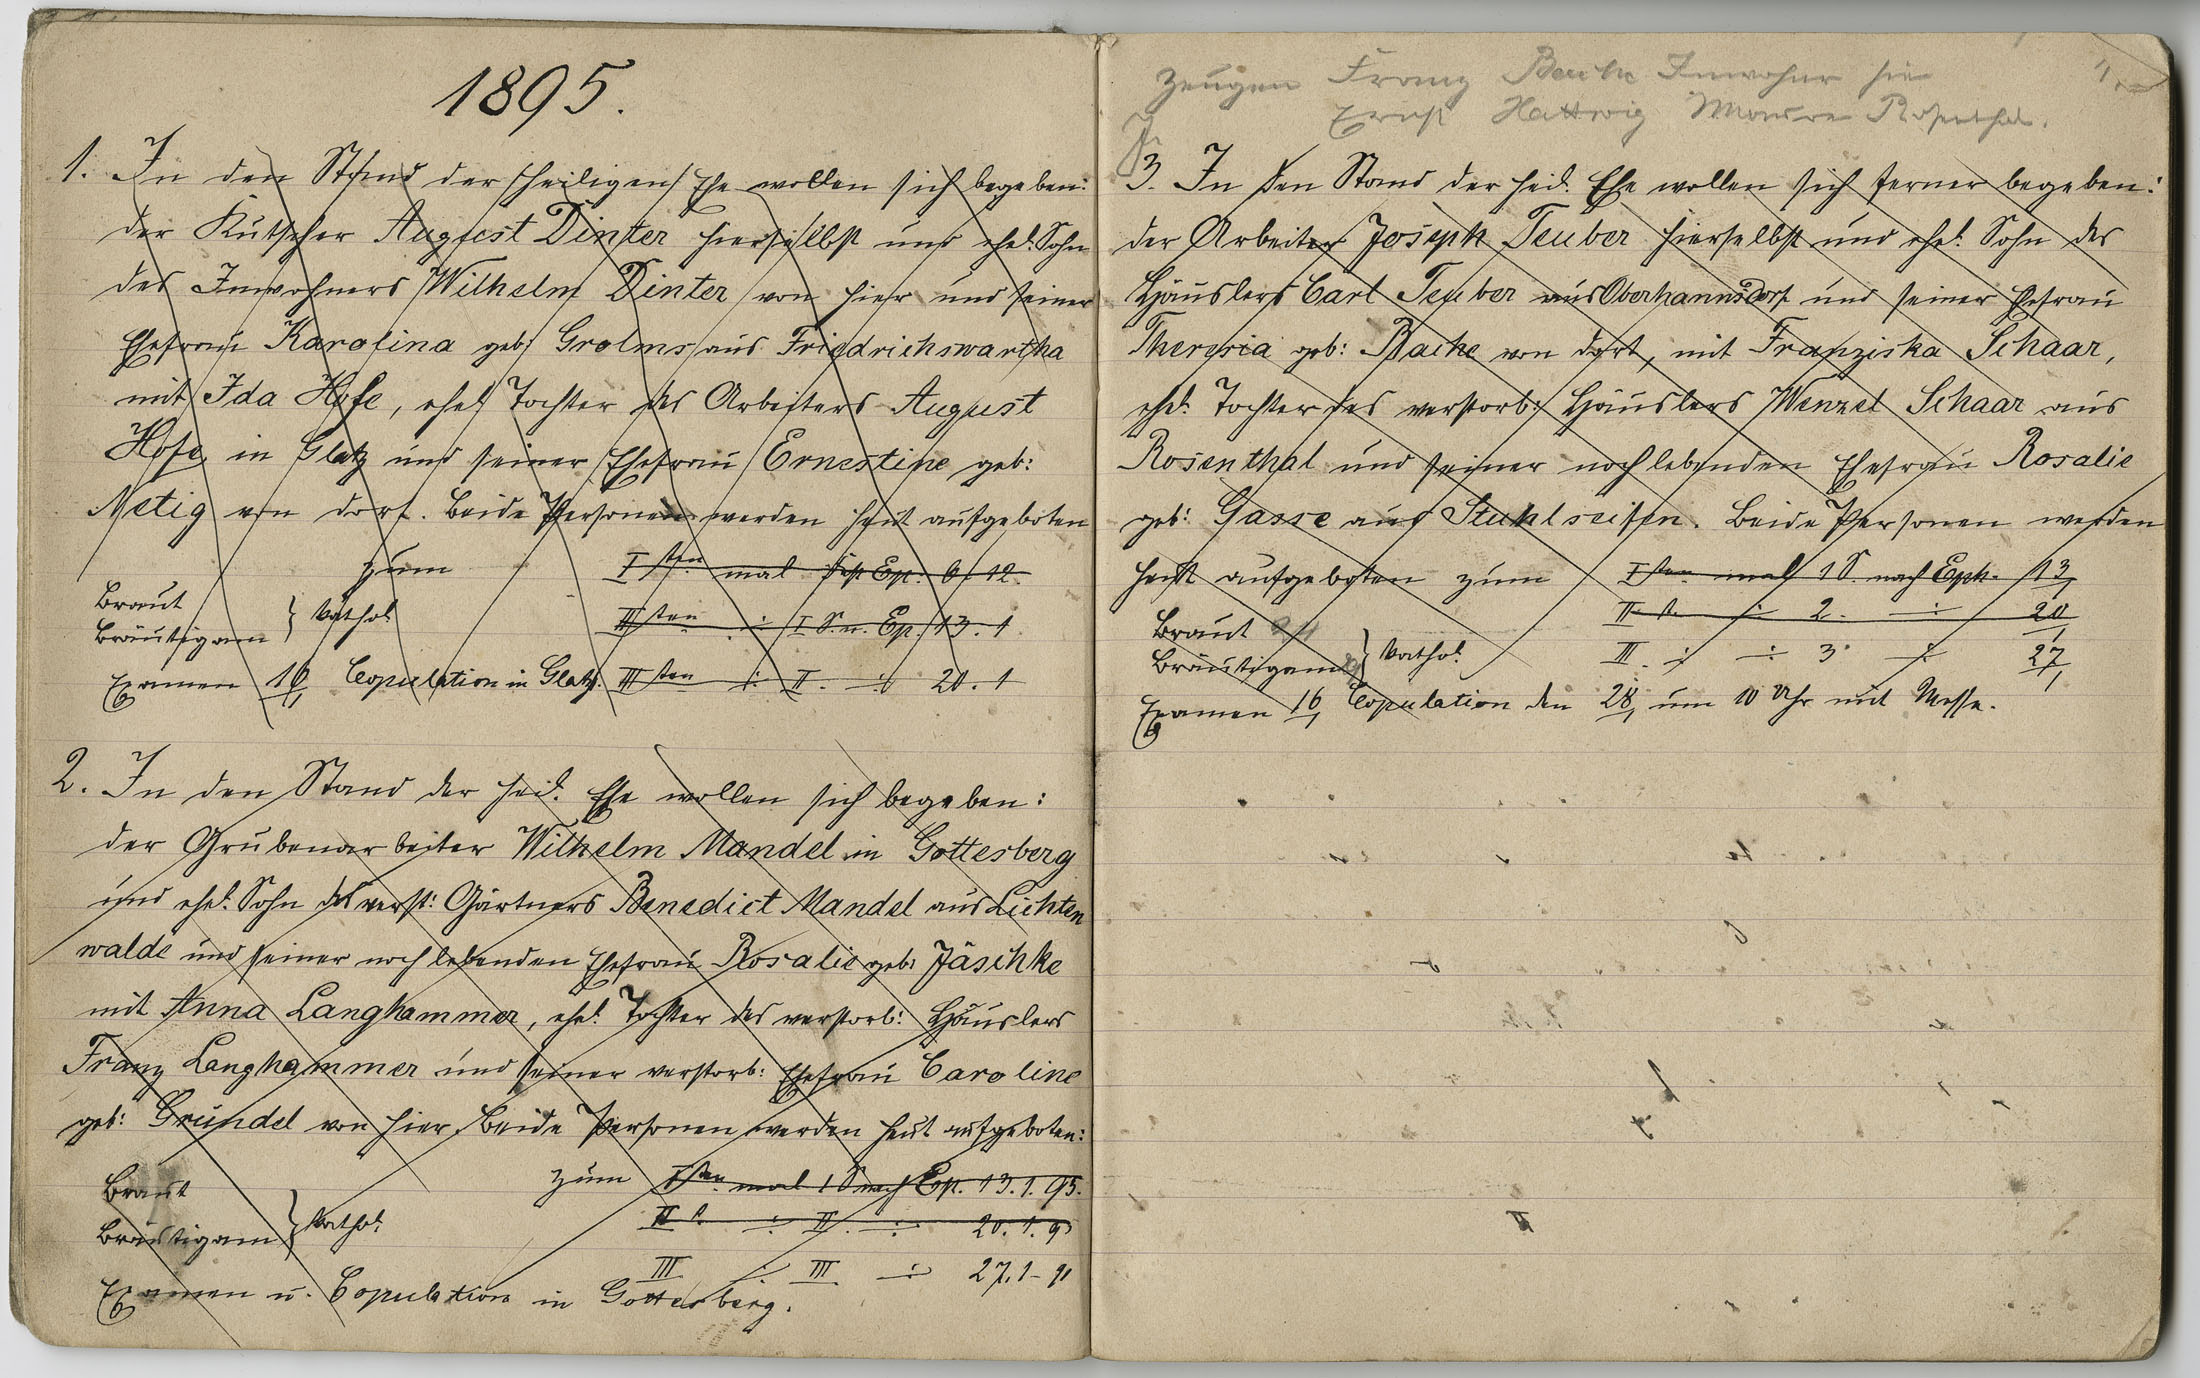 1895.
1. In den Stand der heiligen Ehe wollen sich begeben:
der Kutscher August Dinter hierselbst und ehel. Sohn
des Inwohners Wilhelm Dinter von hier und seiner
Ehefrau Karolina geb: Grolms aus Friedrichswartha
mit Ida Hofe, ehel. Tochter des Arbeiters August
Hofe in Glatz und seiner Ehefrau Ernestine geb:
Metig von dort. Beide Personen werden heut aufgeboten
zum Isten mal fest Ep. 6/12.
Braut
Bräutigam } kathol.
IIsten ÷ I S. n. Ep. 13.1
Examen Copulation in Glatz. IIIsten ÷ II. ÷ 20.1
2. In den Stand der heil. Ehe wollen sich begeben:
der Grubenarbeiter Wilhelm Mandel in Gottesberg
und ehel. Sohn des verst: Gärtners Benedict Mandel aus Lichten
walde und seiner noch lebenden Ehefrau Rosalie geb: Jäschke
mit Anna Langhammer, ehel. Tochter des verstorb: Häuslers
Franz Langhammer und seiner verstorb: Ehefrau Caroline
geb: Gründel von hier. Beide Personen werden heut aufgeboten:
zum Isten mal 1 S nach Ep. 13.1.95.
Braut
Bräutigam } kathol.
II t. ÷ II. ÷ 20.1.9
III ÷ III. ÷ 27.1-9
Examen u. Copulation in Gottesberg.
Zeugen Franz Inwohner hier
Ernst Hattwig Rosenthal.
3. In den Stand der heil. Ehe wollen sich ferner begeben:
der Arbeiter Joseph Teuber hierselbst und ehel. Sohn des
Häuslers Carl Teuber aus Oberhannsdorf und seiner Ehefrau
Theresia geb: Bache von dort, mit Franziska Schaar,
ehel. Tochter des verstorb: Häuslers Wenzel Schaar aus
Rosenthal und seiner noch lebenden Ehefrau Rosalie
geb: Gasse aus Stuhlseifen. Beide Personen werden
heut aufgeboten zum Isten mal 1 S. nach Eph. 13,
Braut 24
Bräutigam } kathol.
II t. ÷ 2. ÷ 20
III. ÷ ÷ 3 ÷ 27
Examen 16, Copulation den 28, um 10 Uhr mit Messe.